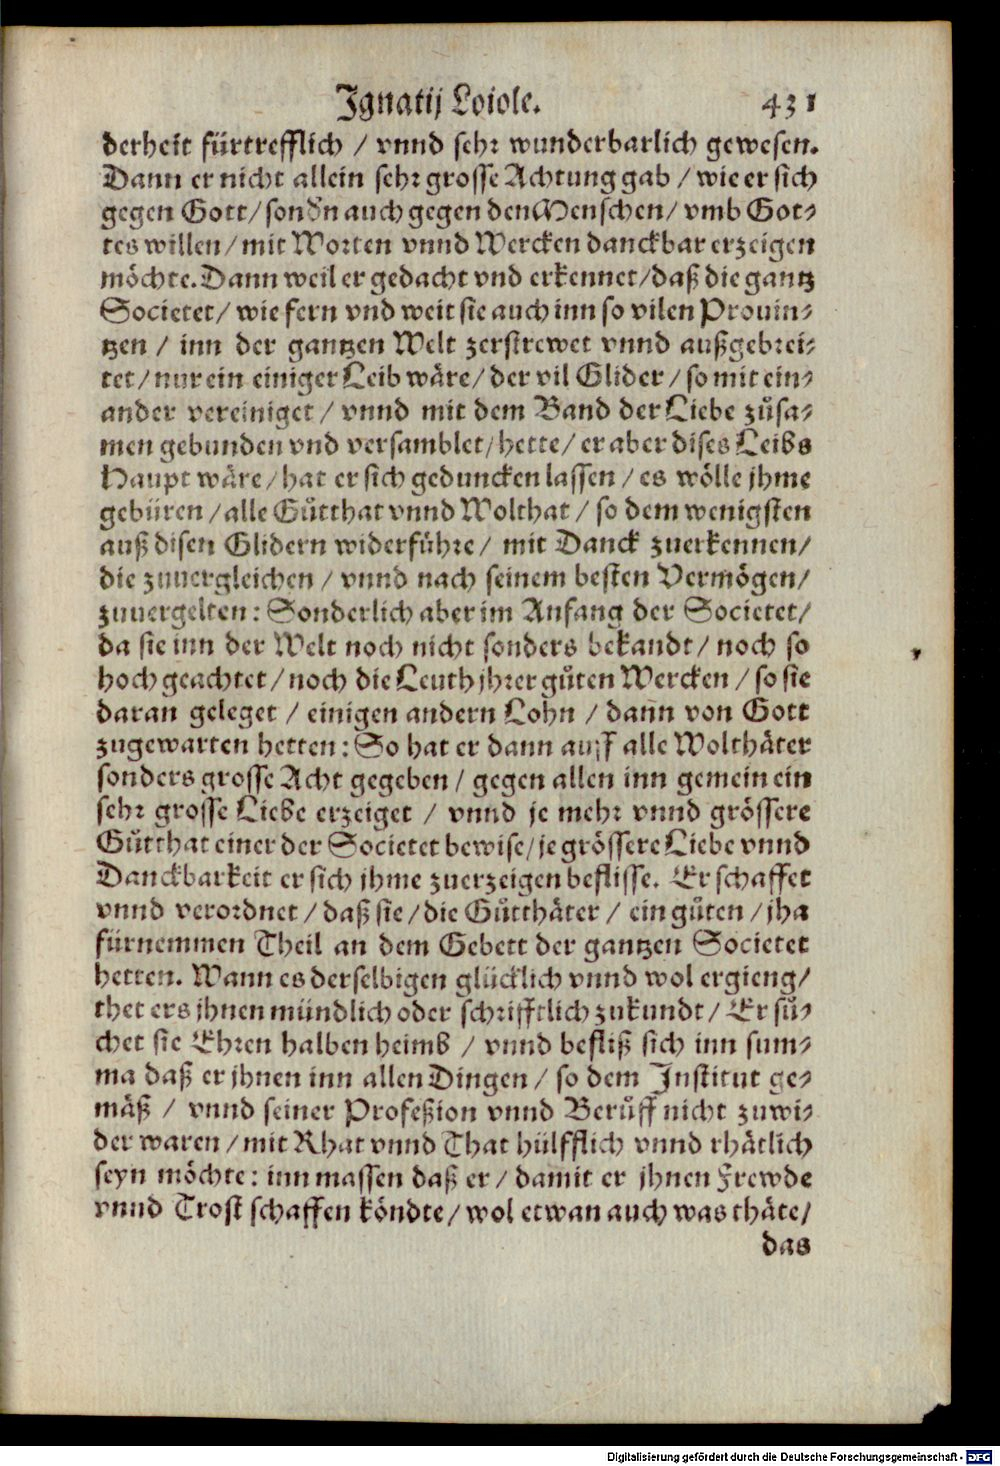 Ignatij Loiole. 431
derheit fürtrefflich / vnnd sehr wunderbarlich gewesen.
Dann er nicht allein sehr grosse Achtung gab / wie er sich
gegen Gott / sondn auch gegen den Menschen / vmb Got⸗
tes willen / mit Worten vnnd Wercken danckbar erzeigen
möchte. Dann weil er gedacht vnd erkennet / daß die gantz
Societet / wie fern vnd weit sie auch inn so vilen Prouin⸗
tzen / inn der gantzen Welt zerstrewet vnnd außgebrei⸗
tet / nur ein einiger Leib wäre / der vil Glider / so mit ein⸗
ander vereiniget / vnnd mit dem Band der Liebe zůsa⸗
men gebunden vnd versamblet / hette / er aber dises Leibs
Haupt wäre / hat er sich geduncken lassen / es wölle jhme
gebüren / alle Gůtthat vnnd Wolthat / so dem wenigsten
auß disen Glidern widerführe / mit Danck zuerkennen /
die zuuergleichen / vnnd nach seinem besten Vermögen /
zuuergelten : Sonderlich aber im Anfang der Societet /
da sie inn der Welt noch nicht sonders bekandt / noch so
hoch geachtet / noch die Leuth jhrer gůten Wercken / so sie
daran geleget / einigen andern Lohn / dann von Gott
zugewarten hetten : So hat er dann auff alle Wolthäter
sonders grosse Acht gegeben / gegen allen inn gemein ein
sehr grosse Liebe erzeiget / vnnd je mehr vnnd grössere
Gůtthat einer der Societet bewise / je grössere Liebe vnnd
Danckbarkeit er sich jhme zuerzeigen beflisse. Er schaffet
vnnd verordnet / daß sie / die Gůtthäter / ein gůten / jha
fürnemmen Theil an dem Gebett der gantzen Societet
hetten. Wann es derselbigen glücklich vnnd wol ergieng /
thet ers jhnen mündlich oder schrifftlich zukundt / Er sů⸗
chet sie Ehren halben heimb / vnnd befliß sich inn sum⸗
ma daß er jhnen inn allen Dingen / so dem Institut ge⸗
mäß / vnnd seiner Profeßion vnnd Berůff nicht zuwi⸗
der waren / mit Rhat vnnd That hülfflich vnnd rhätlich
seyn möchte : inn massen daß er / damit er jhnen Frewde
vnnd Trost schaffen köndte / wol etwan auch was thäte /
das
Digitalisierung gefördert durch die Deutsche Forschungsgemeinschaft - DFG